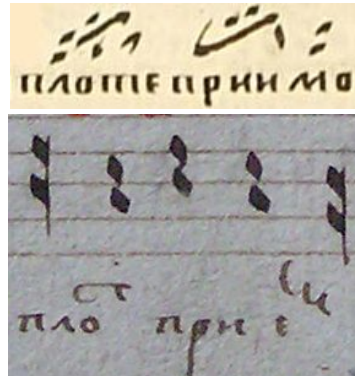 плоте прии мо
пло т при е и